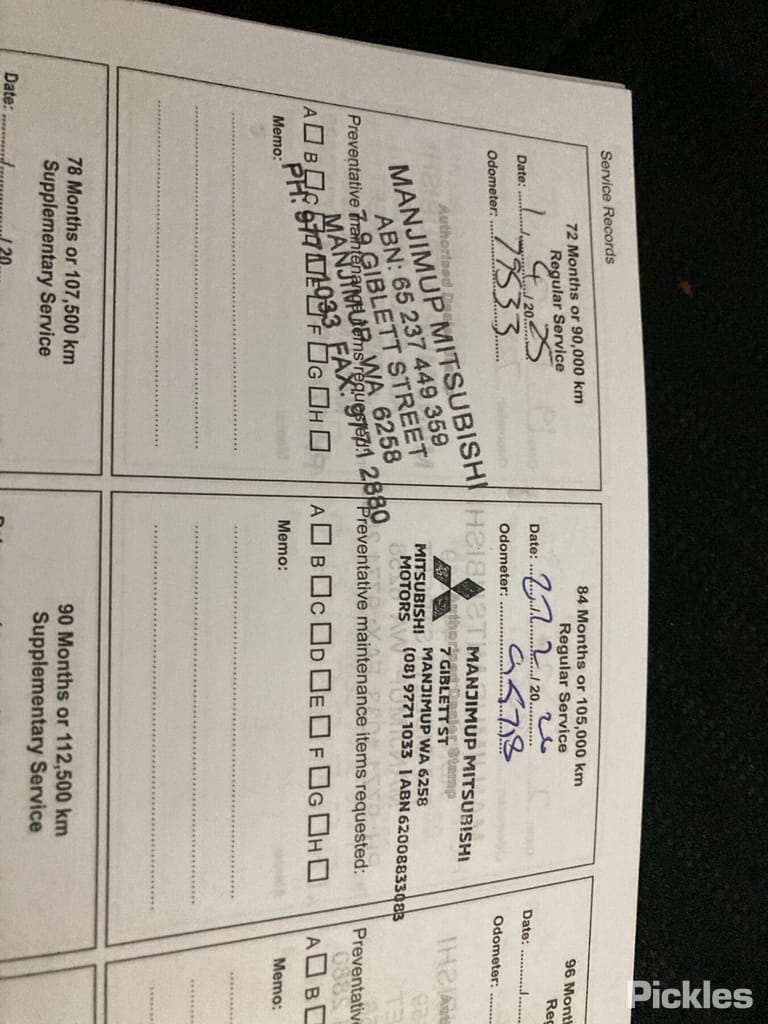 Service Records
72 Months or 90,000 km
Regular Service
Date: 1/4/20
Odometer: 79533
Authorised Dealer
MANJIMUP MITSUBISHI
ABN: 65 237 449 359
7-9 GIBLETT STREET
MANJIMUP WA 6258
PH: 9771 1033 FAX: 9771 2880
Preventative maintenance items requested:
A B C D E F G H
Memo:
84 Months or 105,000 km
Regular Service
Date: /2/20
Odometer:
Authorised Dealer Stamp
MITSUBISHI
MOTORS
MANJIMUP MITSUBISHI
7 GIBLETT ST
MANJIMUP WA 6258
(08) 9771 1033 | ABN 62008833083
Preventative maintenance items requested:
A B C D E F G H
Memo:
96 Mont
Reg
Date:
Odometer:
Preventativ
A B
Memo:
78 Months or 107,500 km
Supplementary Service
Date: / /20
90 Months or 112,500 km
Supplementary Service
Pickles